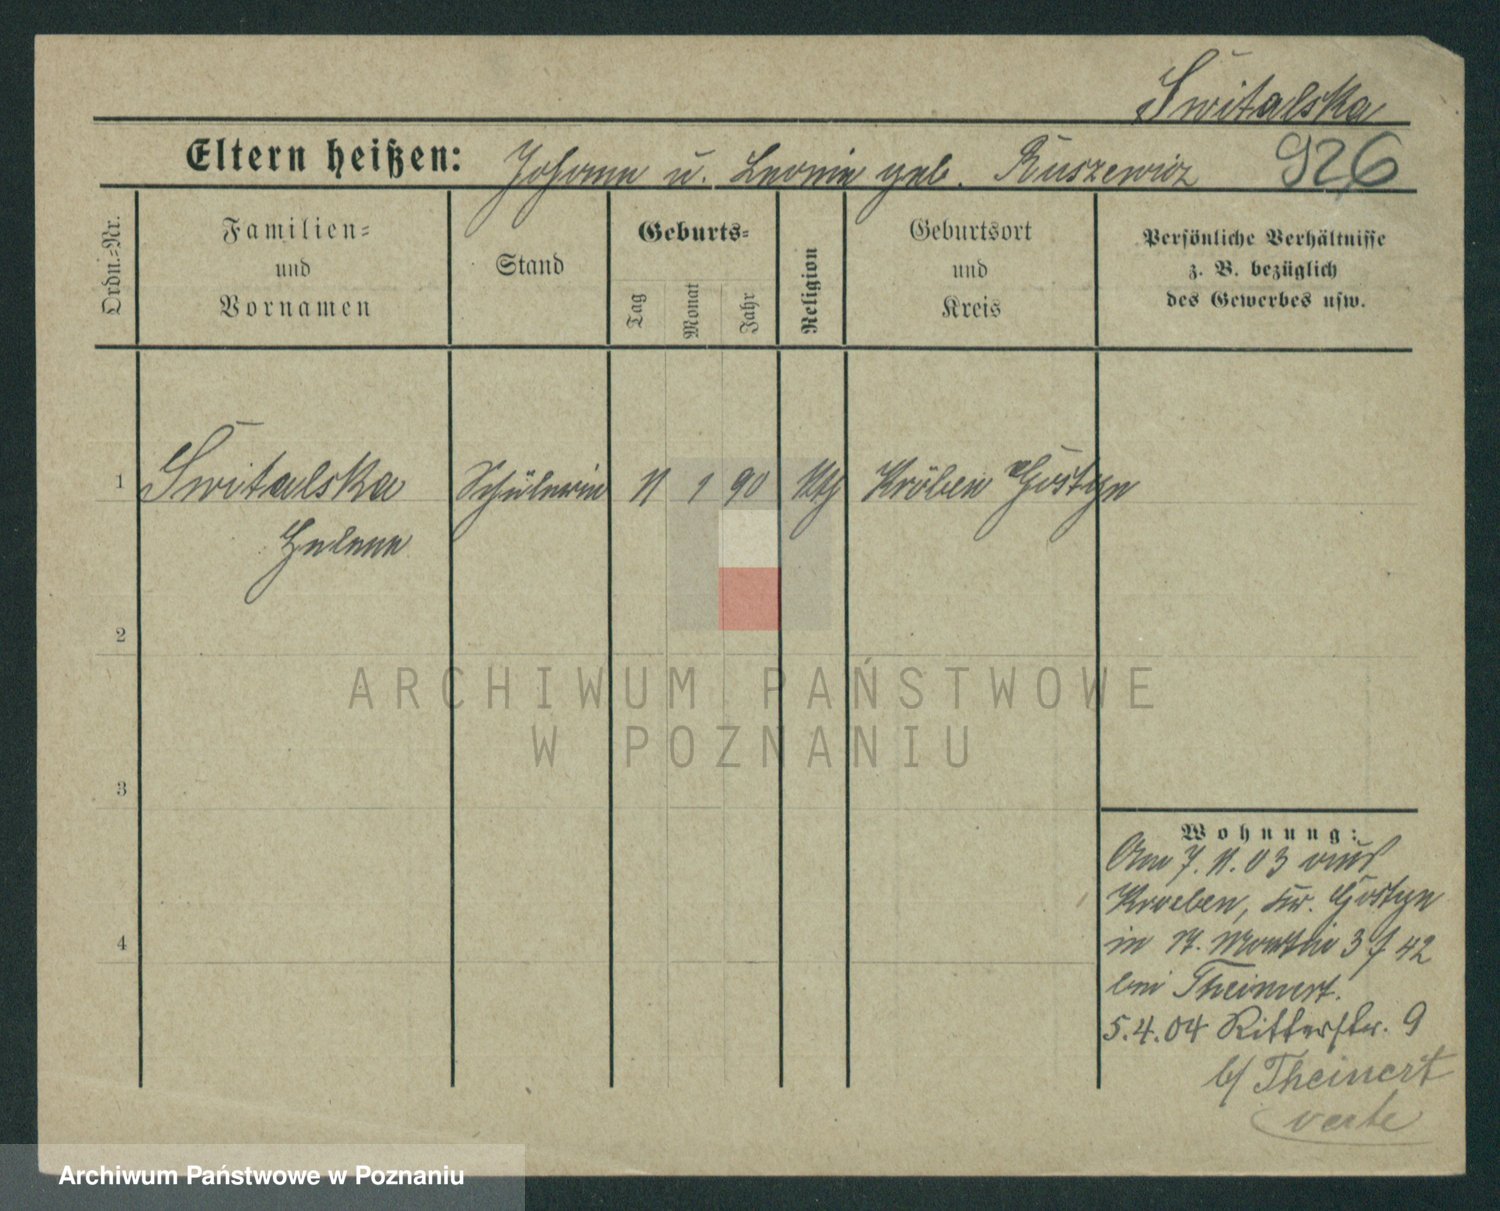 Świtalska
Eltern heißen: Johann u. Leonie geb. Ruszewicz 926
Ordn.-Nr.
Familien-
und
Vornamen
Stand
Geburts-
Tag
Monat
Jahr
Religion
Geburtsort
und
Kreis
Persönliche Verhältnisse
z. B. bezüglich
des Gewerbes usw.
1 Świtalska Schülerin 11 1 90 kth Kröben Gostyn
Helene
2
3
4
Wohnung:
Am 7. 11. 03 aus
Kroeben, Kr. Gostyn
in St. Martin 3 f 42
bei Theinert.
5.4.04 Ritterstr. 9
b/ Theinert
verte
ARCHIWUM PAŃSTWOWE
W POZNANIU
Archiwum Państwowe w Poznaniu